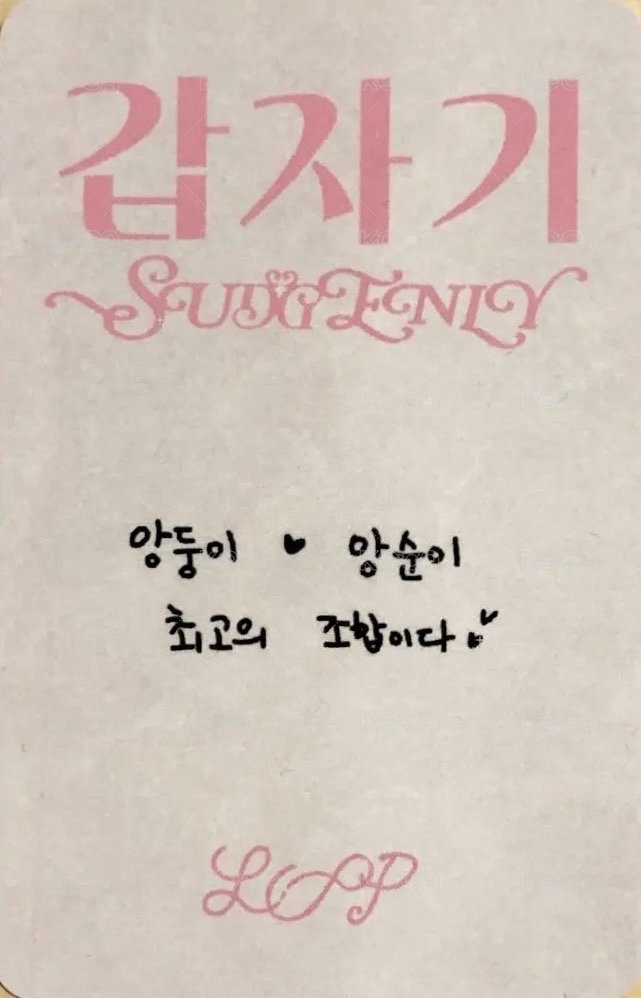 갑자기
SUDDENLY
앙둥이 ♥ 앙순이
최고의 조합이다
LOOP